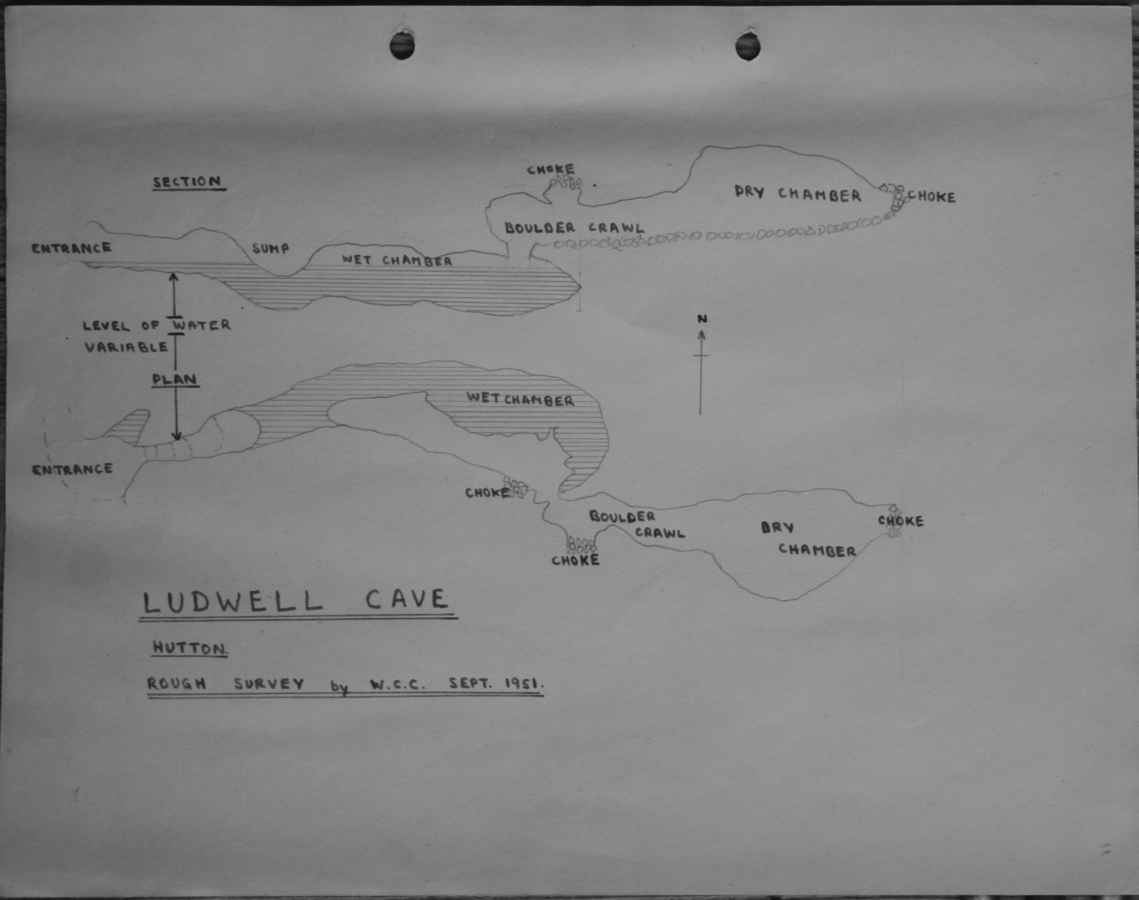 SECTION
CHOKE
DRY CHAMBER
CHOKE
BOULDER CRAWL
ENTRANCE
SUMP
WET CHAMBER
LEVEL OF WATER
VARIABLE
N
PLAN
WET CHAMBER
ENTRANCE
CHOKE
BOULDER
CRAWL
CHOKE
DRY
CHAMBER
CHOKE
LUDWELL CAVE
HUTTON
ROUGH SURVEY by W.C.C. SEPT. 1951.